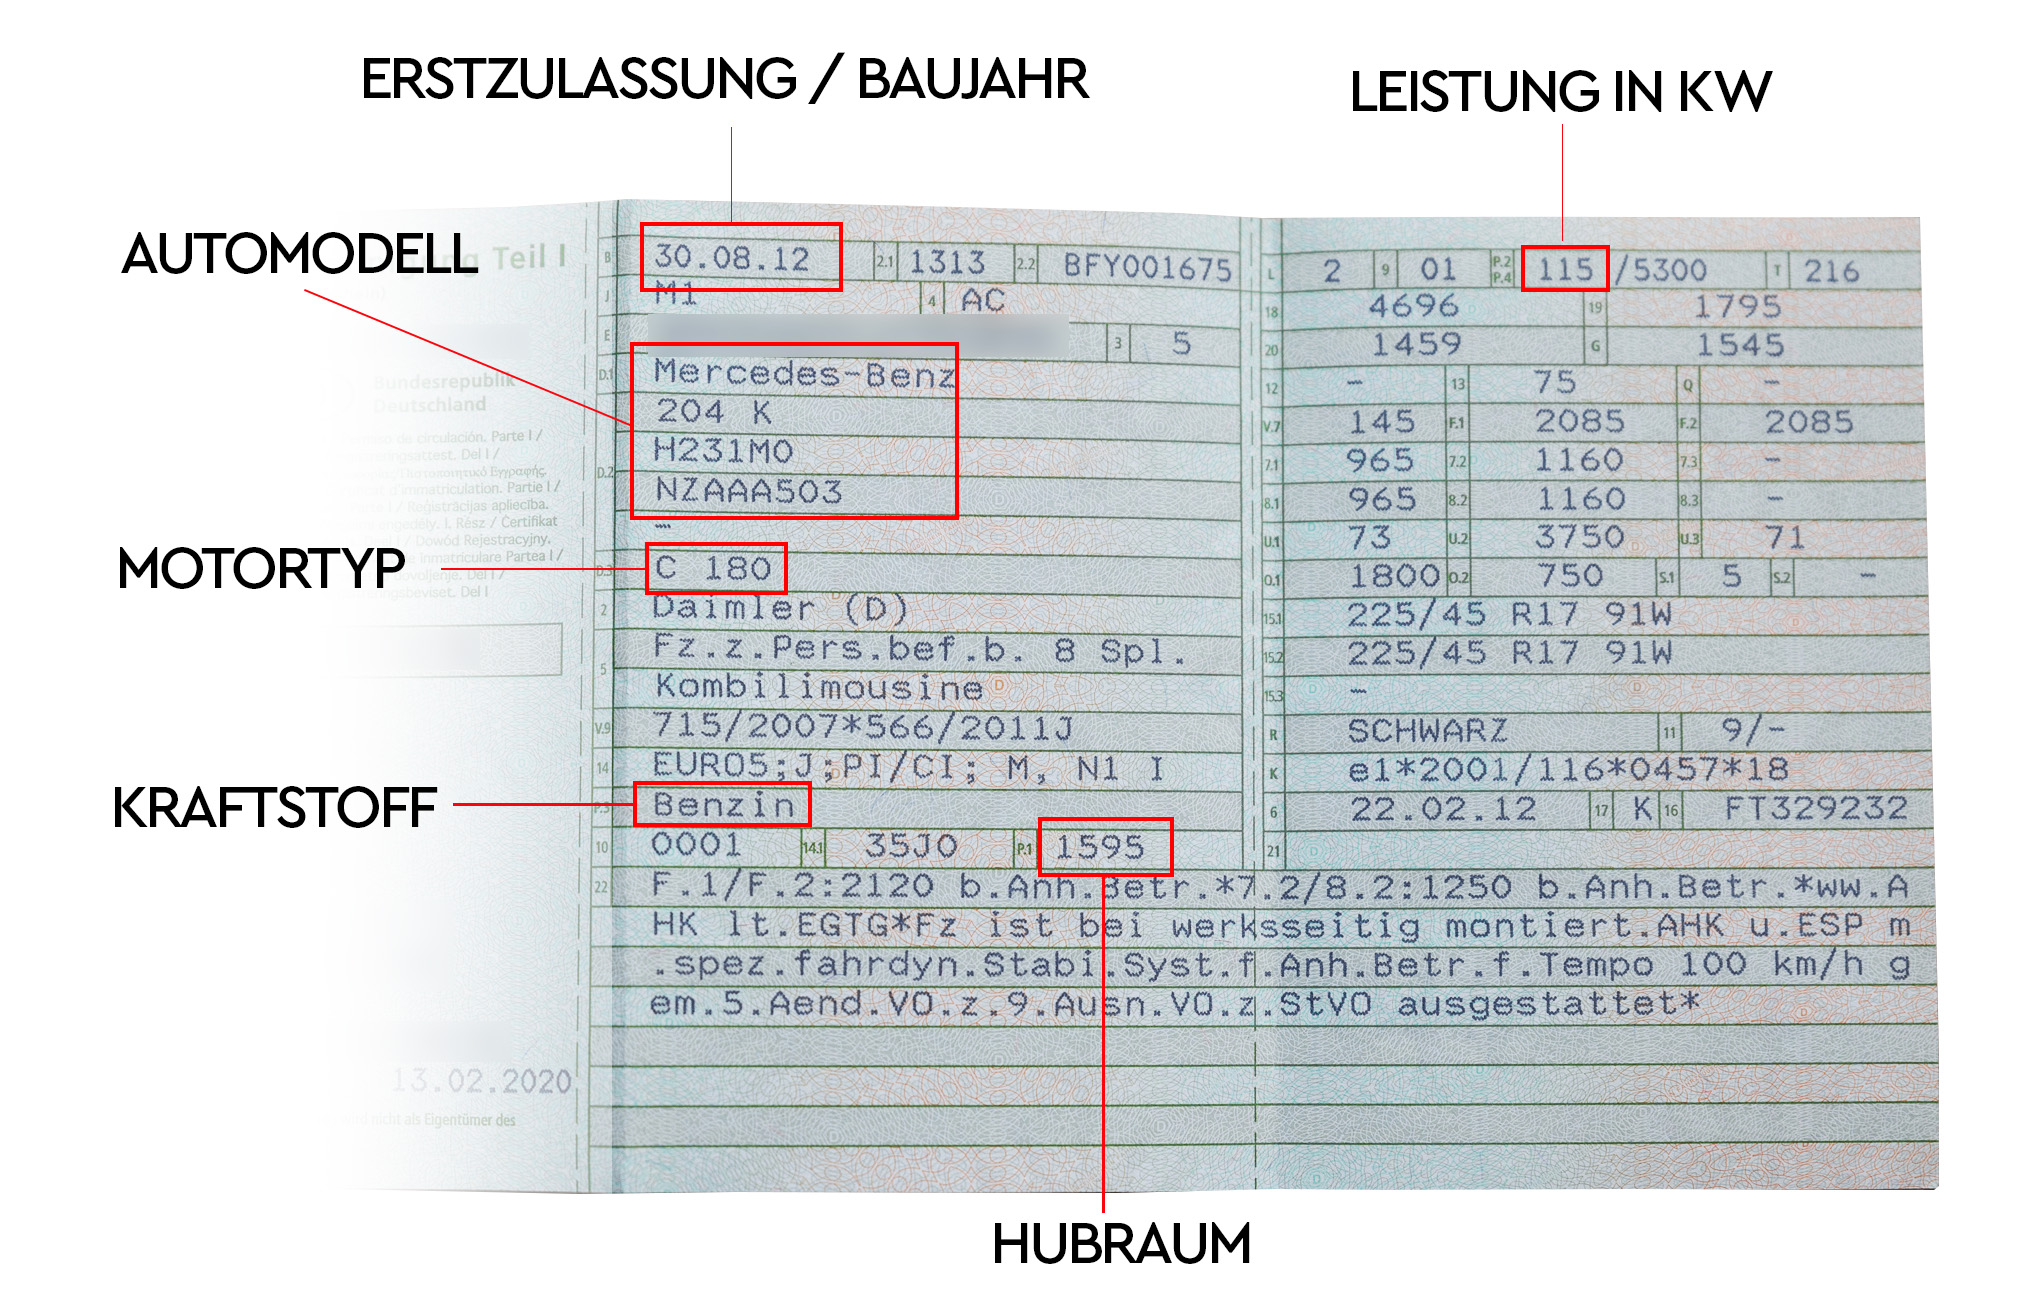 ERSTZULASSUNG / BAUJAHR
LEISTUNG IN KW
AUTOMODELL
MOTORTYP
KRAFTSTOFF
HUBRAUM
Teil I
Bundesrepublik
Deutschland
de circulación. Parte I /
Del I /
Εγγραφής.
d'immatriculation. Partie I /
/ Reģistrācijas apliecība.
I. Rész / Čertifikat
I / Dowód Rejestracyjny.
inmatriculare Partea I /
Del I /
Del I
13.02.2020
nicht als Eigentümer des
B 30.08.12 2.1 1313 2.2 BFY001675
J M1 4 AC
E 3 5
D.1 Mercedes-Benz
204 K
D.2 H231M0
NZAAA503
–
D.3 C 180
2 Daimler (D)
5 Fz.z.Pers.bef.b. 8 Spl.
Kombilimousine
V.9 715/2007*566/2011J
14 EURO5;J;PI/CI; M, N1 I
P.3 Benzin
10 0001 14.1 35J0 P.1 1595
L 2 9 01 P.2 P.4 115 /5300 T 216
18 4696 19 1795
20 1459 G 1545
12 – 13 75 Q –
V.7 145 F.1 2085 F.2 2085
7.1 965 7.2 1160 7.3 –
8.1 965 8.2 1160 8.3 –
U.1 73 U.2 3750 U.3 71
O.1 1800 O.2 750 S.1 5 S.2 –
15.1 225/45 R17 91W
15.2 225/45 R17 91W
15.3 –
R SCHWARZ 11 9/–
K e1*2001/116*0457*18
6 22.02.12 17 K 16 FT329232
21
22 F.1/F.2:2120 b.Anh.Betr.*7.2/8.2:1250 b.Anh.Betr.*ww.A
HK lt.EGTG*Fz ist bei werksseitig montiert.AHK u.ESP m
.spez.fahrdyn.Stabi.Syst.f.Anh.Betr.f.Tempo 100 km/h g
em.5.Aend.VO.z.9.Ausn.VO.z.StVO ausgestattet*